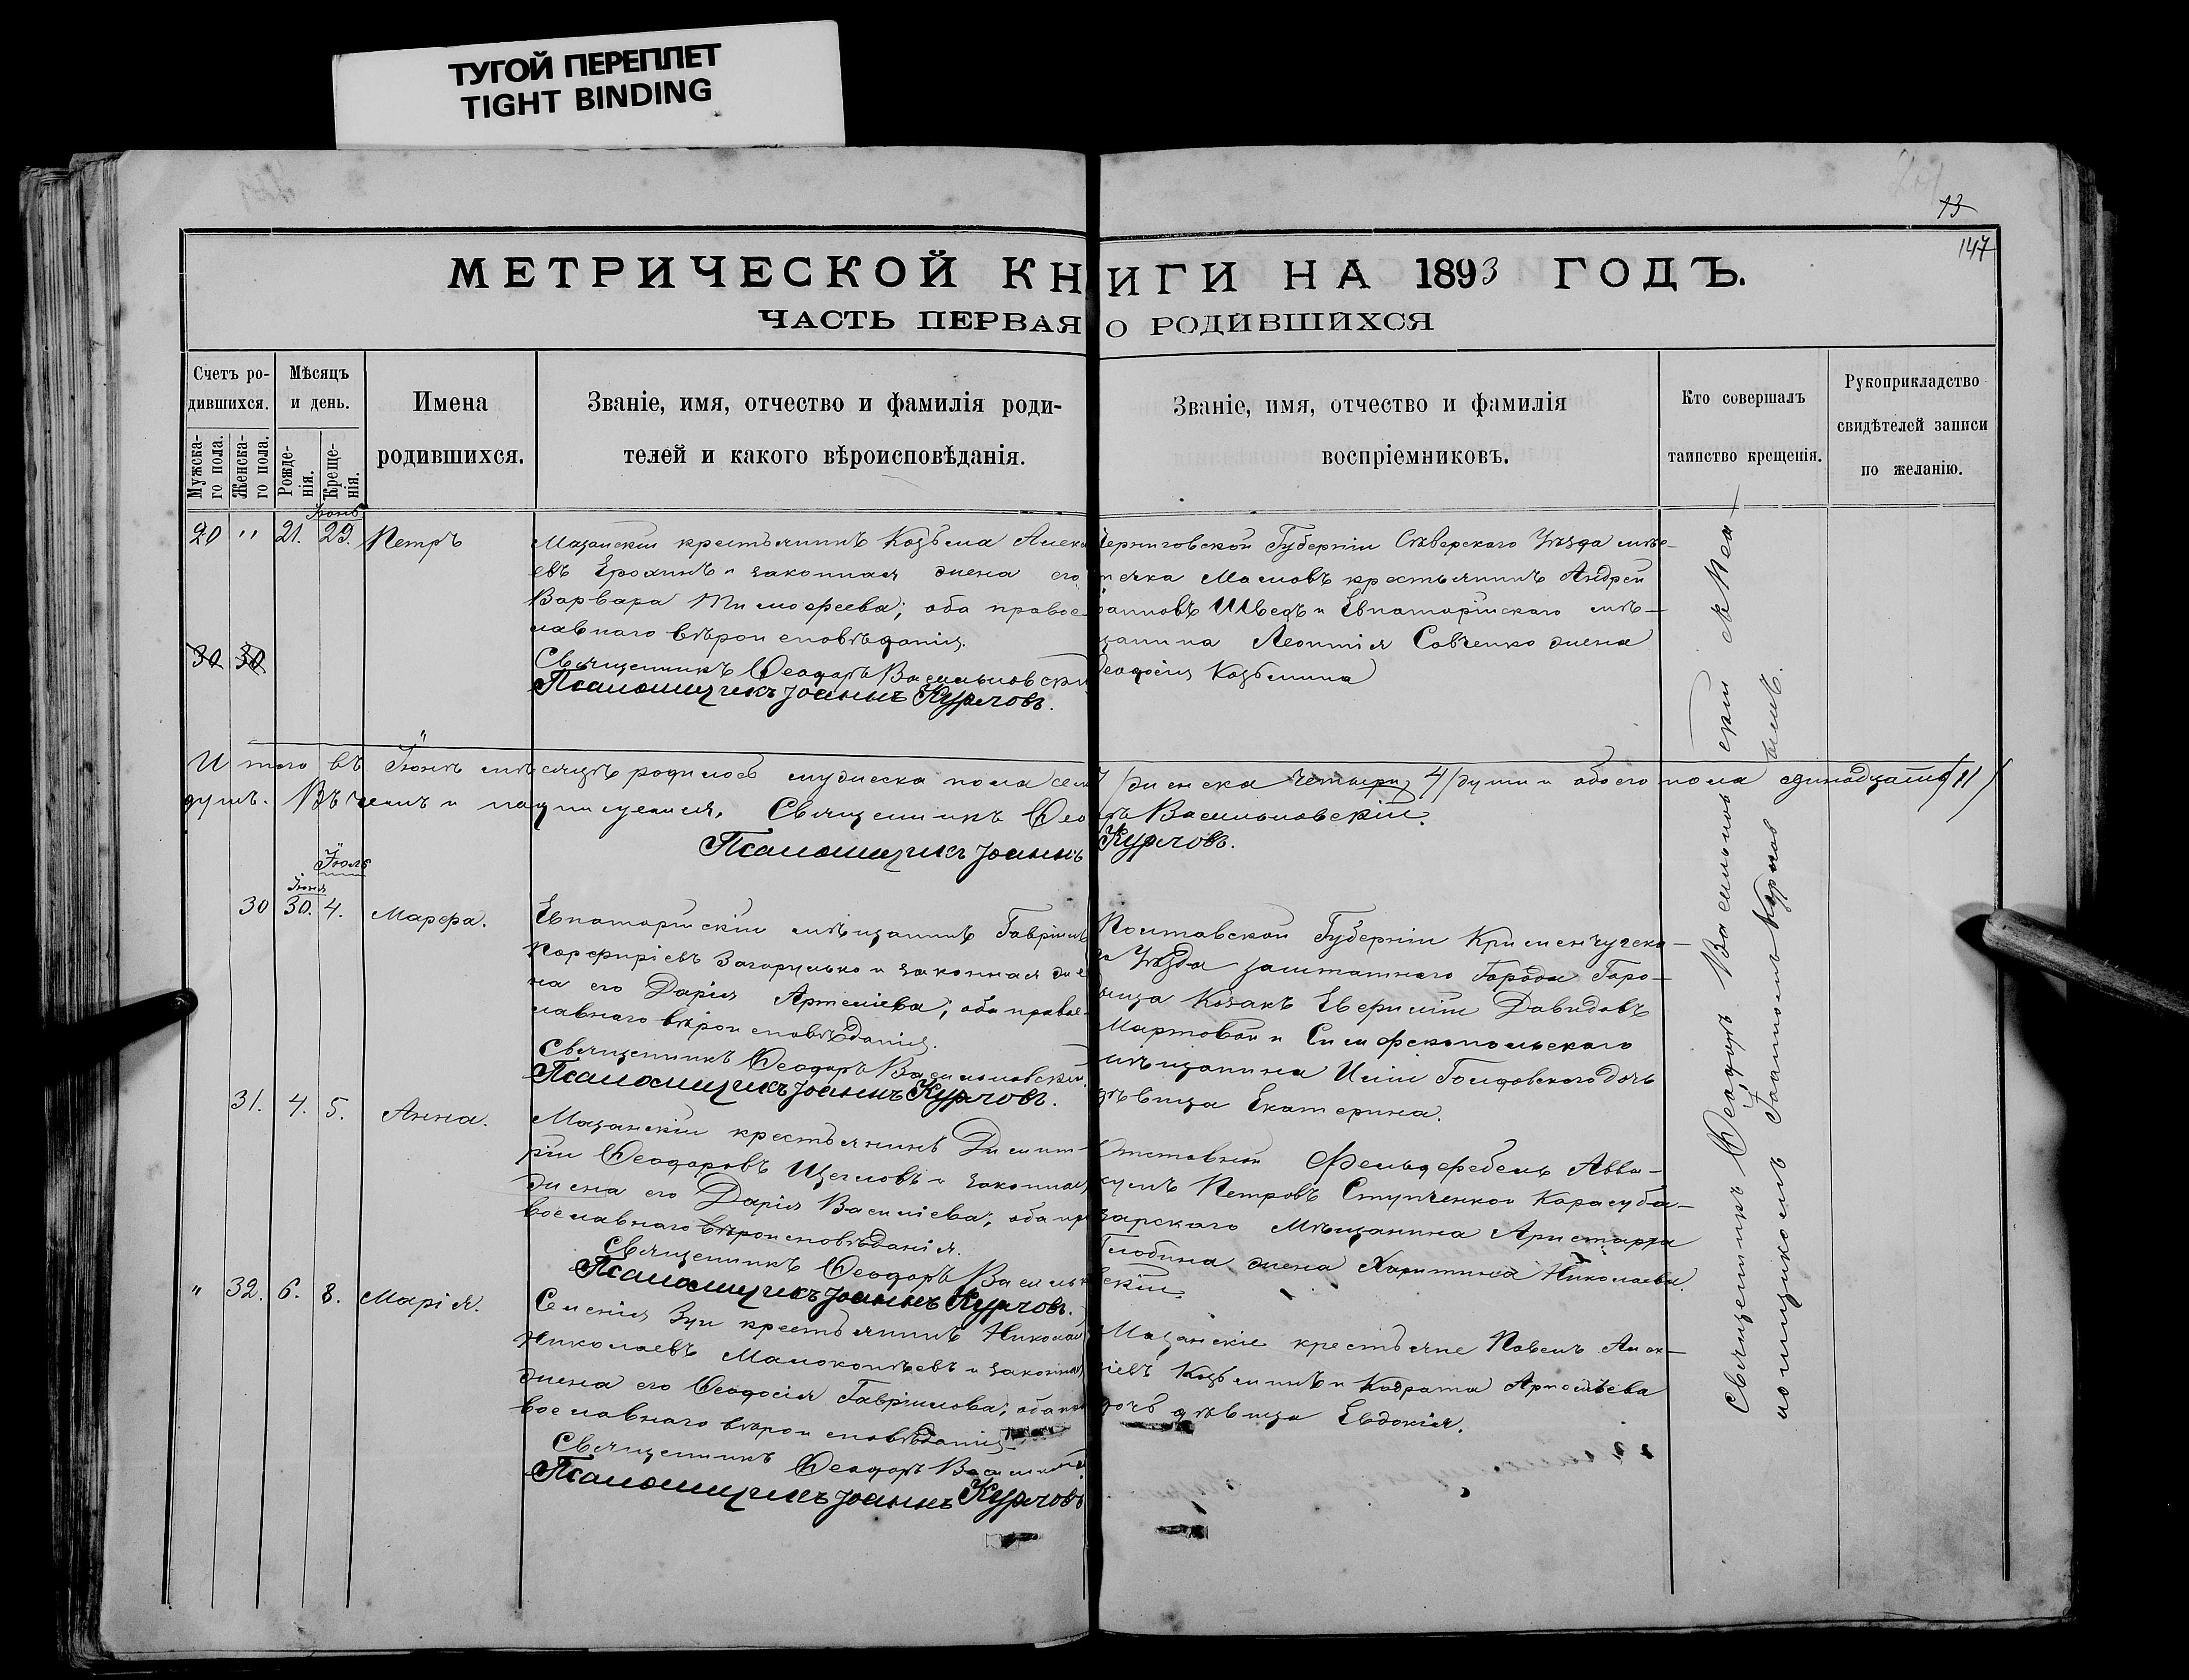 ТУГОЙ ПЕРЕПЛЕТ
TIGHT BINDING
13
147
МЕТРИЧЕСКОЙ КНИГИ НА 1893 ГОДЪ.
ЧАСТЬ ПЕРВАЯ О РОДИВШИХСЯ
Счетъ ро-
дившихся.
Мужска-
го пола.
Женска-
го пола.
Мѣсяцъ
и день.
Рожде-
нія.
Креще-
нія.
Имена
родившихся.
Званіе, имя, отчество и фамилія роди-
телей и какого вѣроисповѣданія.
Званіе, имя, отчество и фамилія
воспріемниковъ.
Кто совершалъ
таинство крещенія.
Рукоприкладство
свидѣтелей записи
по желанію.
Іюнь
20 " 21. 29. Петръ
Мазанскій крестьянинъ Козьма Алекс
евъ Ерохинъ и законная жена его
Варвара Тимофеева; оба правос-
лавнаго вѣроисповѣданія.
Священникъ Ѳеодоръ Васильковскій
Псаломщикъ Іоаннъ Курчовъ.
Черниговской Губерніи Сѣверского Уѣзда мѣс-
течка крестьянинъ Андрей
Швецъ и Евпаторійскаго мѣ-
щанина Леонтія Савченко жена
Ѳеодосія Козьмина
30 30
Итого въ Іюнѣ мѣсяцѣ родилось мужеска пола сем 7/ женска четыри 4/ души и обоего пола одинадцать /11/
душъ. Въ чемъ и подписуемся. Священникъ Ѳеодоръ Васильковскій.
Псаломщикъ Іоаннъ Курчовъ.
Іюль
Іюня
30 30. 4. Марфа.
Евпаторійскій мѣщанинъ Гавріилъ
Порфиріевъ Загорулько и законная же
на его Дарія Артеміева; оба правос-
лавнаго вѣроисповѣданія.
Священникъ Ѳеодоръ Васильковскій.
Псаломщикъ Іоаннъ Курчовъ.
Полтавской Губерніи Крименчугска-
го Уѣзда заштатнаго Города
Козакъ Евфимій Давидовъ
Мартовой и Симферопольскаго
мѣщанина Иліи дочь
дѣвица Екатерина.
31. 4. 5. Анна.
Мазанскій крестьянинъ Димит-
рій Ѳеодоровъ Щегловъ и законная
жена его Дарія Василіева; оба пра
вославнаго вѣроисповѣданія.
Священникъ Ѳеодоръ Васильковскій.
Псаломщикъ Іоаннъ Курчовъ.
Отставной Фельдфебель Авва-
кумъ Петровъ Ступченко и Карасуба-
зарскаго Мѣщанина Аристарха
Глобина жена Харитина Николаева.
" 32. 6. 8. Марія.
крестьянинъ Николай
Николаевъ и законная
жена его Ѳеодосія Гавріилова; оба пра
вославнаго вѣроисповѣданія
Священникъ Ѳеодоръ Васильковскій
Псаломщикъ Іоаннъ Курчовъ
Мазанскіе крестьяне Павелъ Алек-
сіевъ Козьминъ и Кодрата Артемьева
дочь дѣвица Евдокія.
Священникъ Ѳеодоръ Васильковскій съ Пса-
ломщикомъ Іоанномъ Курчовымъ.